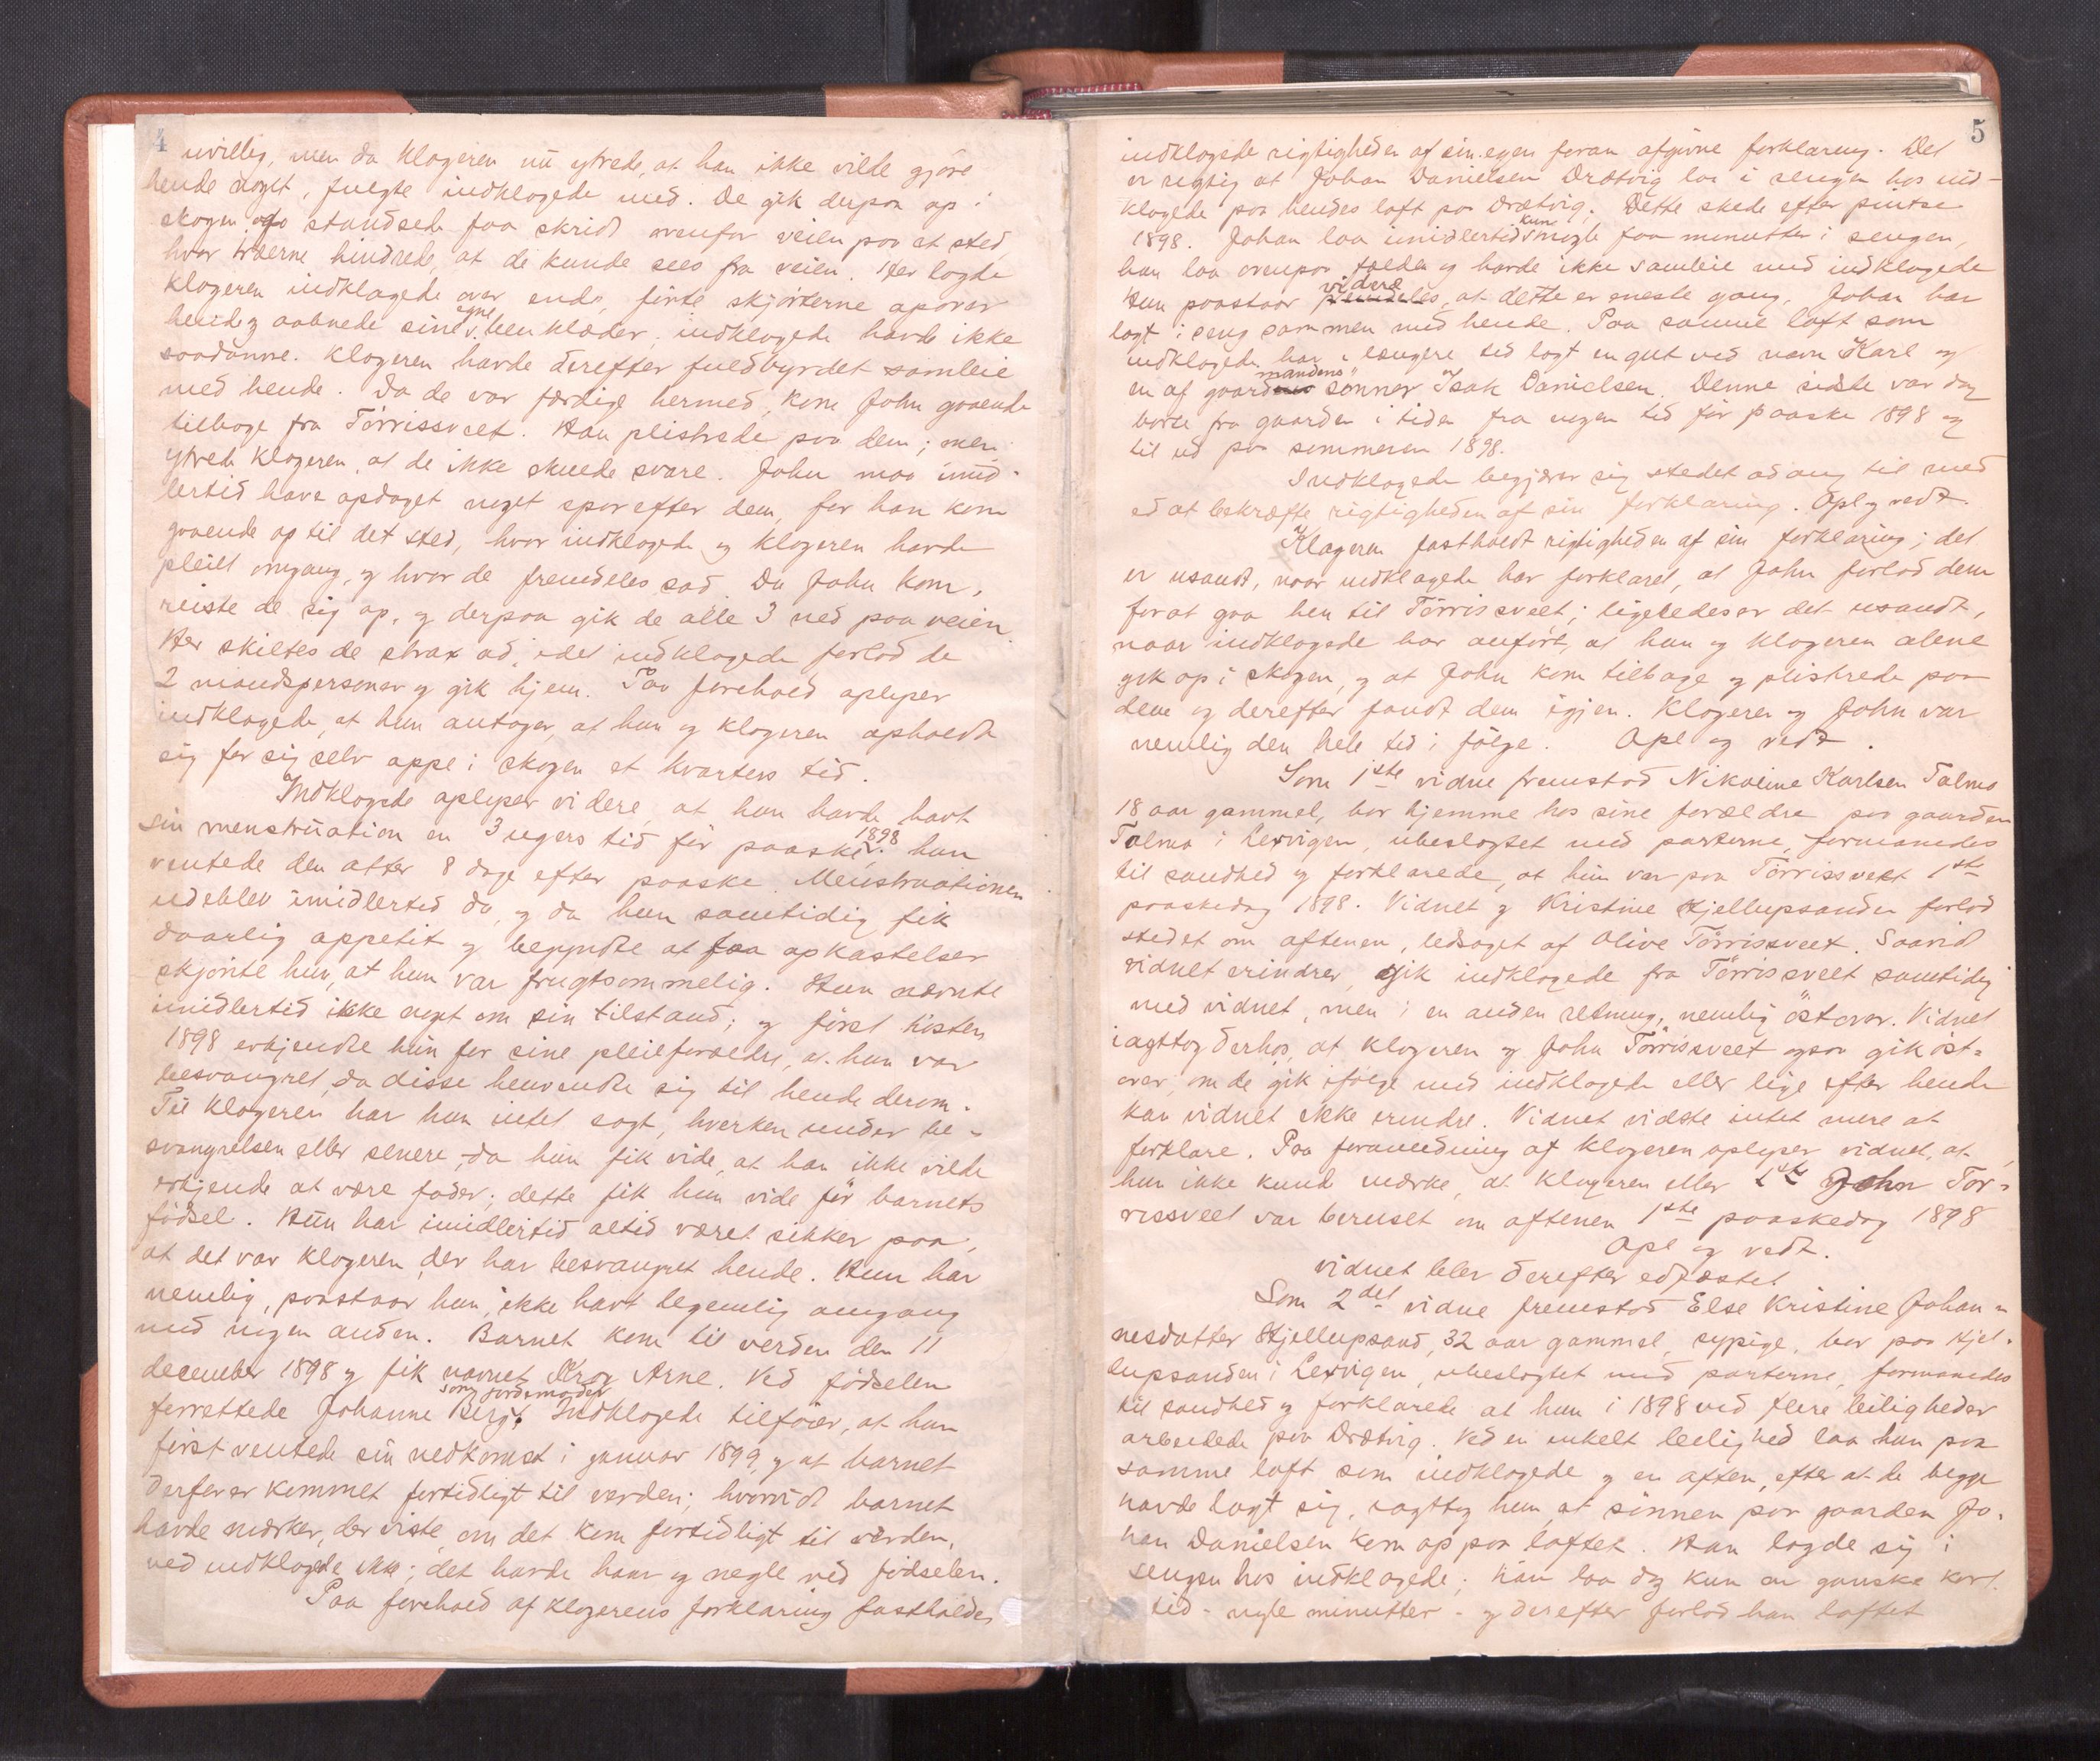 4
uvillig, men da klageren nu ytrede, at han ikke vilde gjöre
hende noget, fulgte indklagede med. De gik derpaa op i
skogen og standsede faa skridt ovenfor veien paa et sted,
hvor træerne hindrede, at de kunde sees fra veien. Her lagde
klageren indklagede over ende, förte skjörterne opover
hende og aabnede sine egne benklæder; indklagede havde ikke
saadanne. Klageren havde derefter fuldbyrdet samleie
med hende. Da de var færdige hermed, kom John gaaende
tilbage fra Törrissveet. Han plistrede paa dem; men
ytrede klageren, at de ikke skulde svare. John maa imid-
lertid have opdaget noget spor efter dem, for han kom
gaaende op til det sted, hvor indklagede og klageren havde
pleiet omgang, og hvor de fremdeles sad. Da John kom,
reiste de sig op, og derpaa gik de alle 3 ned paa veien.
Her skiltes de strax ad, idet indklagede forlod de
2 mandspersoner og gik hjem. Paa forehold oplyser
indklagede, at hun antager, at hun og klageren opholdt
sig for sig selv oppe i skogen et kvarters tid.
Indklagede oplyser videre, at hun havde havt
sin menstruation en 3 ugers tid för paaske 1898; hun
ventede den atter 8 dage efter paaske. Menstruationen
udeblev imidlertid da, og da hun samtidig fik
daarlig appetit og begyndte at faa opkastelser
skjönte hun, at hun var frugtsommelig. Hun nævnte
imidlertid ikke noget om sin tilstand; og först hösten
1898 erkjendte hun for sine pleieforældre, at hun var
besvangret, da disse henvendte sig til hende derom.
Til klageren har hun intet sagt, hverken under be-
svangrelsen eller senere, da hun fik vide, at han ikke vilde
erkjende at være fader; dette fik hun vide för barnets
födsel. Hun har imidlertid altid været sikker paa,
at det var klageren, der har besvangret hende. Hun har
nemlig, paastaar hun, ikke havt legemlig omgang
med nogen anden. Barnet kom til verden den 11
december 1898 og fik navnet Krog Arne. Ved födselen
forrettede Johanne Berg som jordemoder. Indklagede tilföier, at hun
först ventede sin nedkomst i januar 1899, og at barnet
derfor er kommet fortidligt til verden; hvorvidt barnet
havde mærker, der viste, om det kom fortidligt til verden,
ved indklagede ikke; det havde haar og negle ved födselen.
Paa forehold af klagerens forklaring fastholder
5
indklagede rigtigheden af sin egen foran afgivne forklaring. Det
er rigtig at Johan Danielsen Drætvig laa i sengen hos ind-
klagede paa hendes loft paa Drætvig. Dette skede efter pintse
1898. Johan laa imidlertid kun nogle faa minutter i sengen,
han laa ovenpaa fælden og havde ikke samleie med indklagede
Hun paastaar videre, at dette er eneste gang, Johan har
lagt i seng sammen med hende. Paa samme loft som
indklagede har i længere tid lagt en gut ved navn Karl og
en af gaardmandens sönner Isak Danielsen. Denne sidste var dog
borte fra gaarden i tiden fra nogen tid för paaske 1898 og
til ud paa sommeren 1898.
Indklagede begjærer sig stedet adgang til med
ed at bekræfte rigtigheden af sin forklaring. Opl og vedt.
Klageren fastholdt rigtigheden af sin forklaring; det
er usandt, naar indklagede har forklaret, at John forlod dem
for at gaa hen til Törrissveet; ligeledes er det usandt,
naar indklagede har anfört, at hun og klageren alene
gik op i skogen, og at John kom tilbage og plistrede paa
dem og derefter fandt dem igjen. Klageren og John var
nemlig den hele tid i fölge. Opl og vedt.
Som 1ste vidne fremstod Nikoline Karlsen Talmo
18 aar gammel, bor hjemme hos sine forældre paa gaarden
Talmo i Lexvigen, ubeslægtet med parterne, formanedes
til sandhed og forklarede, at hun var paa Törrissveet 1ste
paaskedag 1898. Vidnet og Kristine Kjellupsanden forlod
stedet om aftenen, ledsaget af Olive Törrissveet. Saavidt
vidnet erindrer, gik indklagede fra Törrissveet samtidig
med vidnet, men i en anden retning, nemlig östover. Vidnet
iagttog derhos, at klageren og John Törrissveet ogsaa gik öst-
over; om de gik ifölge med indklagede eller lige efter hende
kan vidnet ikke erindre. Vidnet vidste intet mere at
forklare. Paa foranledning af klageren oplyser vidnet, at
hun ikke kunde mærke, at klageren eller John Tör-
rissveet var beruset om aftenen 1ste paaskedag 1898
Opl og vedt.
vidnet blev derefter edfæstet
Som 2det vidne fremstod Else Kristine Johan-
nesdatter Kjellupsand, 32 aar gammel, sypige, bor paa Kjel-
lupsanden i Lexvigen, ubeslægtet med parterne, formanedes
til sandhed og forklarede at hun i 1898 ved flere leiligheder
arbeidede paa Drætvig. Ved en enkelt leilighed laa hun paa
samme loft som indklagede og en aften, efter at de begge
havde lagt sig, iagttog hun, at sönnen paa gaarden Jo-
han Danielsen kom op paa loftet. Han lagde sig i
sengen hos indklagede; han laa dog kun en ganske kort
tid - nogle minutter - og derefter forlod han loftet